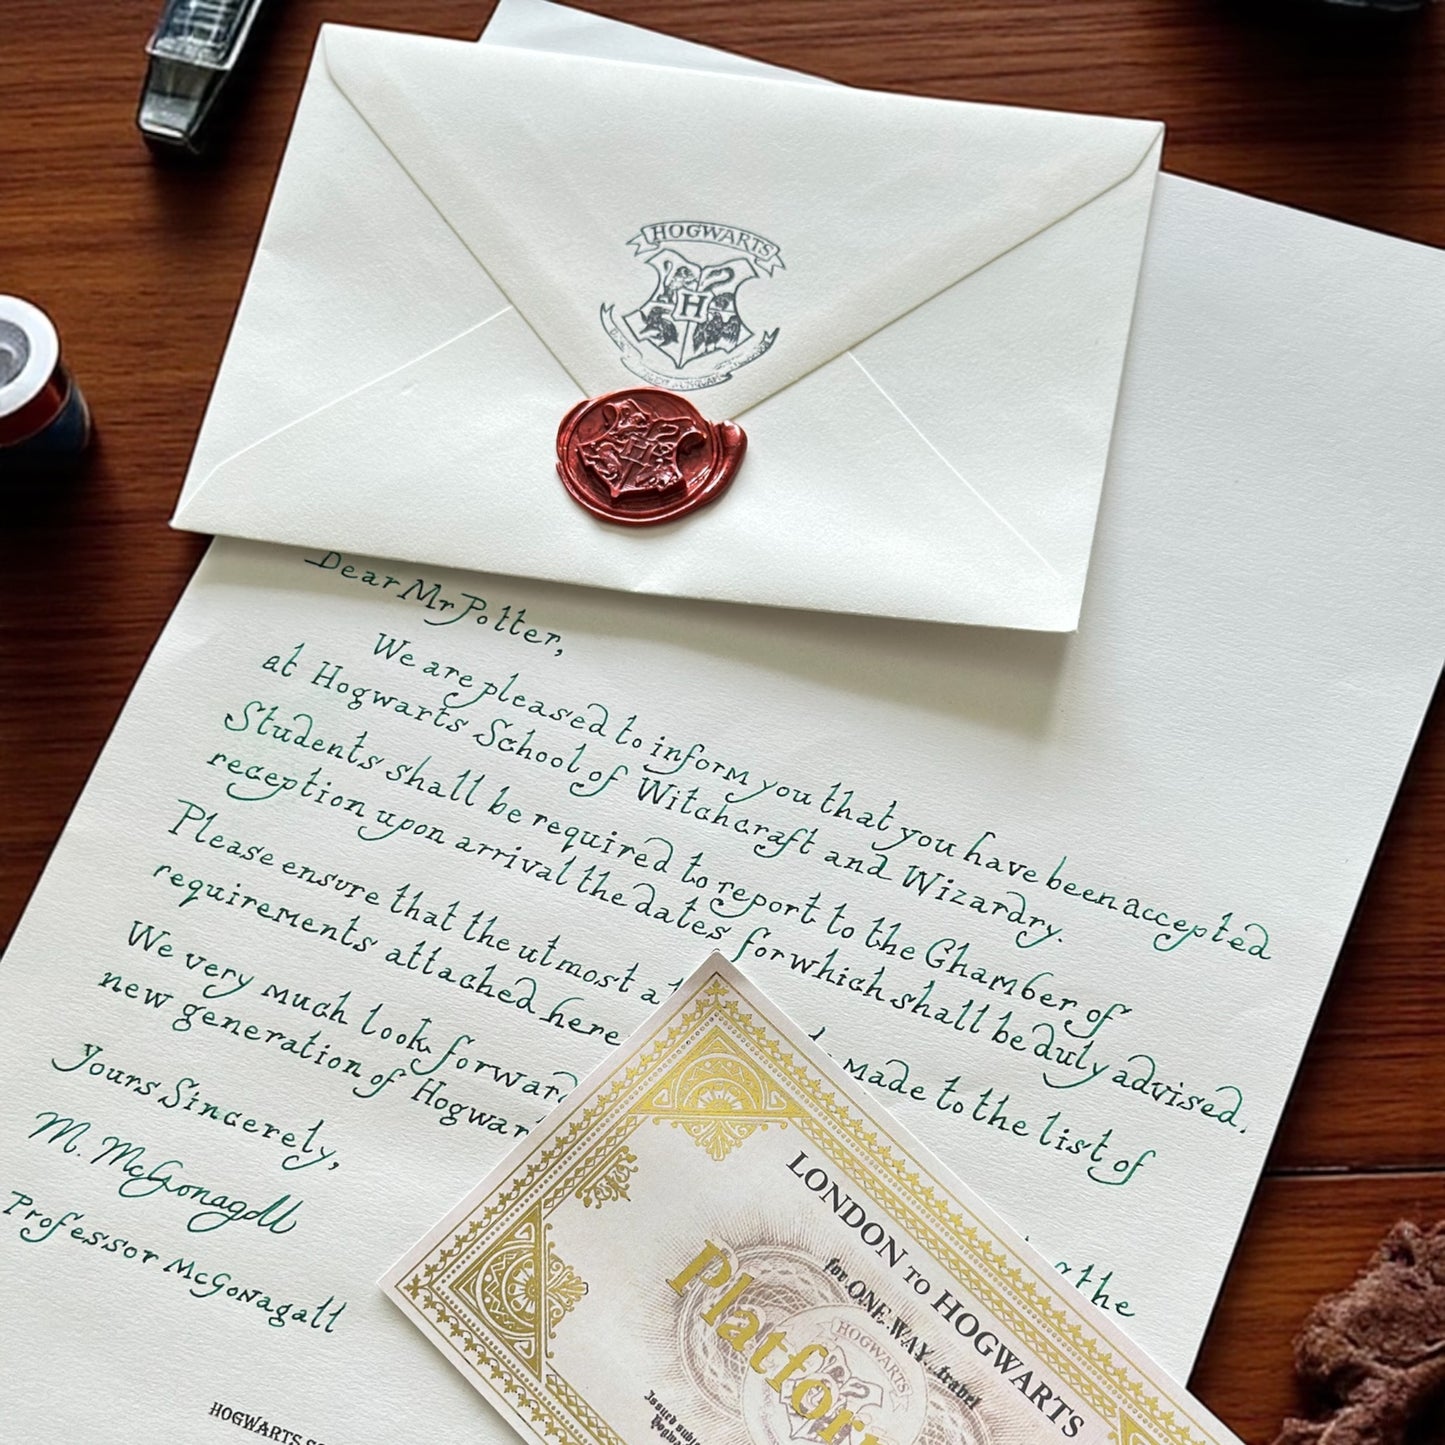 HOGWARTS
H
H
Dear Mr Potter,
We are pleased to inform you that you have been accepted
at Hogwarts School of Witchcraft and Wizardry.
Students shall be required to report to the Chamber of
reception upon arrival the dates for which shall be duly advised.
Please ensure that the utmost made to the list of
requirements attached here
We very much look forward the
new generation of Hogwar
Yours Sincerely,
M. McGonagall
Professor McGonagall
HOGWARTS
LONDON TO HOGWARTS
for ONE WAY travel
Platfor
HOGWARTS
Issued subj
Hogw